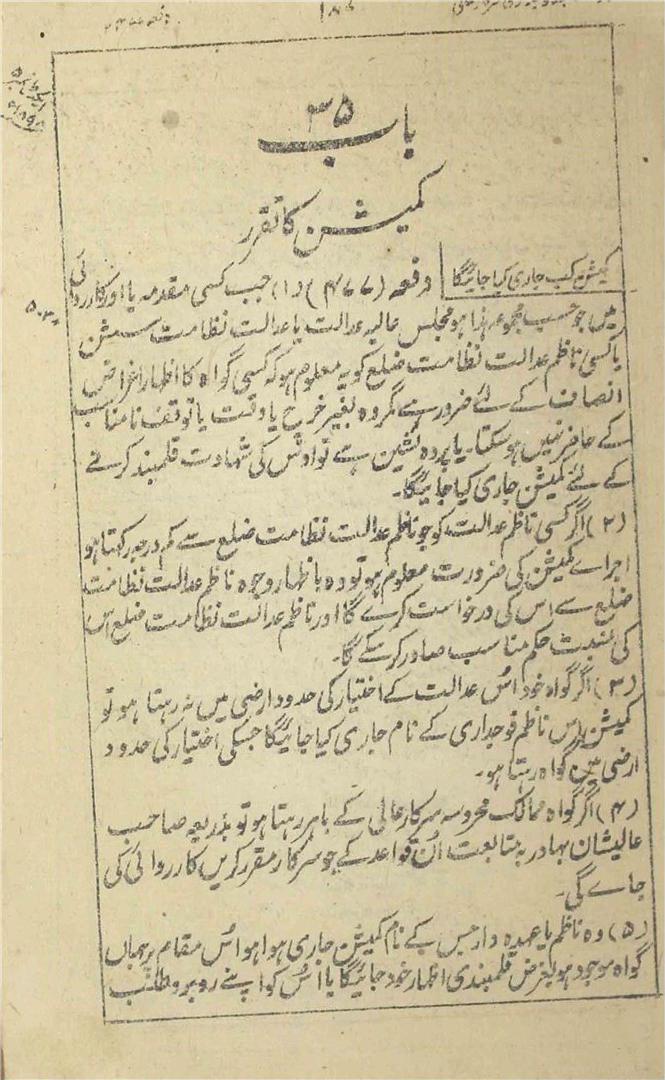 باب ۳۵
کمیشن کا تقرر
کمیشن کب جاری کیا جائیگا
دفعہ (۴۷۷) (۱) جب کسی مقدمہ یا اور کارروائی
۵۰۳
میں جو حسب مجموعہ ہذا ہو مجلس عالیہ عدالت یا عدالت نظامت سشن
یا کسی ناظم عدالت نظامت ضلع کو یہ معلوم ہو کہ کسی گواہ کا اظہار اغراض
انصاف کے لئے ضرور ہے مگر وہ بغیر خرچ یا دقت یا توقف نامناسب
کے حاضر نہیں ہو سکتا۔ یا پردہ نشین ہے تو اوس کی شہادت قلمبند کرنے
کے لئے کمیشن جاری کیا جائیگا۔
(۲) اگر کسی ناظم عدالت کو جو ناظم عدالت نظامت ضلع سے کم درجہ رکھتا ہو
اجراے کمیشن کی ضرورت معلوم ہو تو وہ باظہار وجوہ ناظم عدالت نظامت
ضلع سے اس کی درخواست کرے گا اور ناظم عدالت نظامت ضلع اس
کی نسبت حکم مناسب صادر کر سکے گا۔
(۳) اگر گواہ خود اُس عدالت کے اختیار کی حدود ارضی میں نہ رہتا ہو تو
کمیشن اُس ناظم فوجداری کے نام جاری کیا جائیگا جسکی اختیار کی حدود
ارضی میں گواہ رہتا ہو۔
(۴) اگر گواہ ممالک محروسہ سرکار عالی کے باہر رہتا ہو تو بذریعہ صاحب
عالیشان بہادر بہ متابعت اُن قواعد کے جو سرکار مقرر کریں کارروائی کی
جاے گی۔
(۵) وہ ناظم یا عہدہ دار جس کے نام کمیشن جاری ہوا ہو اُس مقام پر جہاں
گواہ موجود ہو بغرض قلمبندی اظہار خود جائیگا یا اُس کو اپنے روبرو طلب